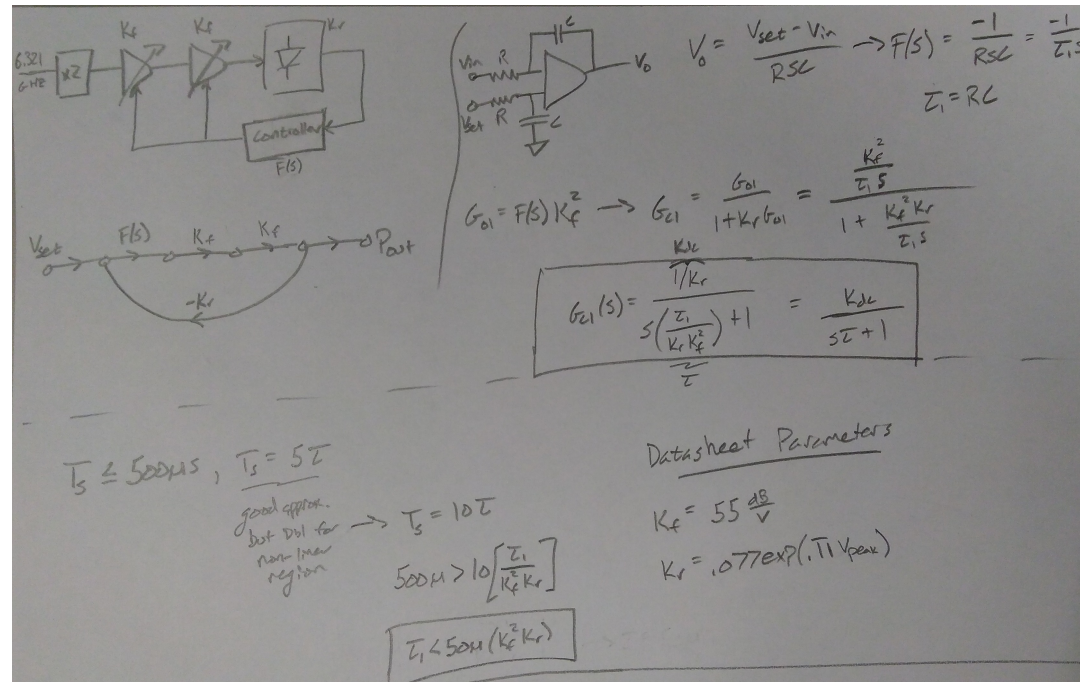 6.321
GHZ
x2
Kf
Kf
Kr
Controller
F(s)
Vin
R
C
Vset
R
C
Vo
Vo = (Vset - Vin)/(RSC) → F(s) = -1/(RSC) = -1/(τ₁s)
τ₁ = RC
Gol = F(s) Kf² → Gcl = Gol/(1 + Kr Gol) = (Kf²/(τ₁s))/(1 + (Kf² Kr)/(τ₁s))
Vset
F(s)
Kf
Kf
Pout
-Kr
Kdc
Gcl(s) = (1/Kr)/(s(τ₁/(Kr Kf²)) + 1) = Kdc/(sτ + 1)
τ
Ts ≤ 500μs, Ts = 5τ
good approx.
but Dbl for
non-linear
region
→ Ts = 10τ
500μ > 10[τ₁/(Kf² Kr)]
τ₁ < 50μ (Kf² Kr)
Datasheet Parameters
Kf = 55 dB/V